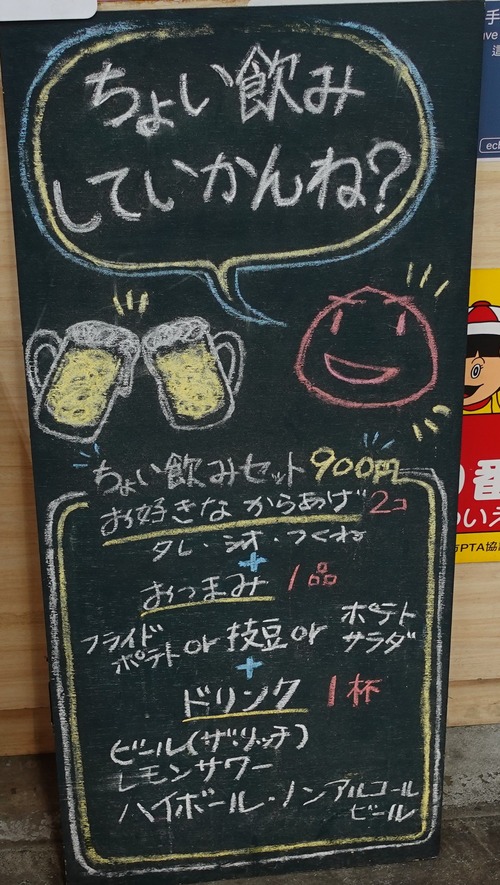 ちょい飲み
していかんね?
ちょい飲みセット 900円
お好きな からあげ 2コ
タレ・シオ・つくね
+
おつまみ 1品
フライドポテト or 枝豆 or ポテトサラダ
+
ドリンク 1杯
ビール(ザ・リッチ)
レモンサワー
ハイボール・ノンアルコールビール
手
番
市PTA協